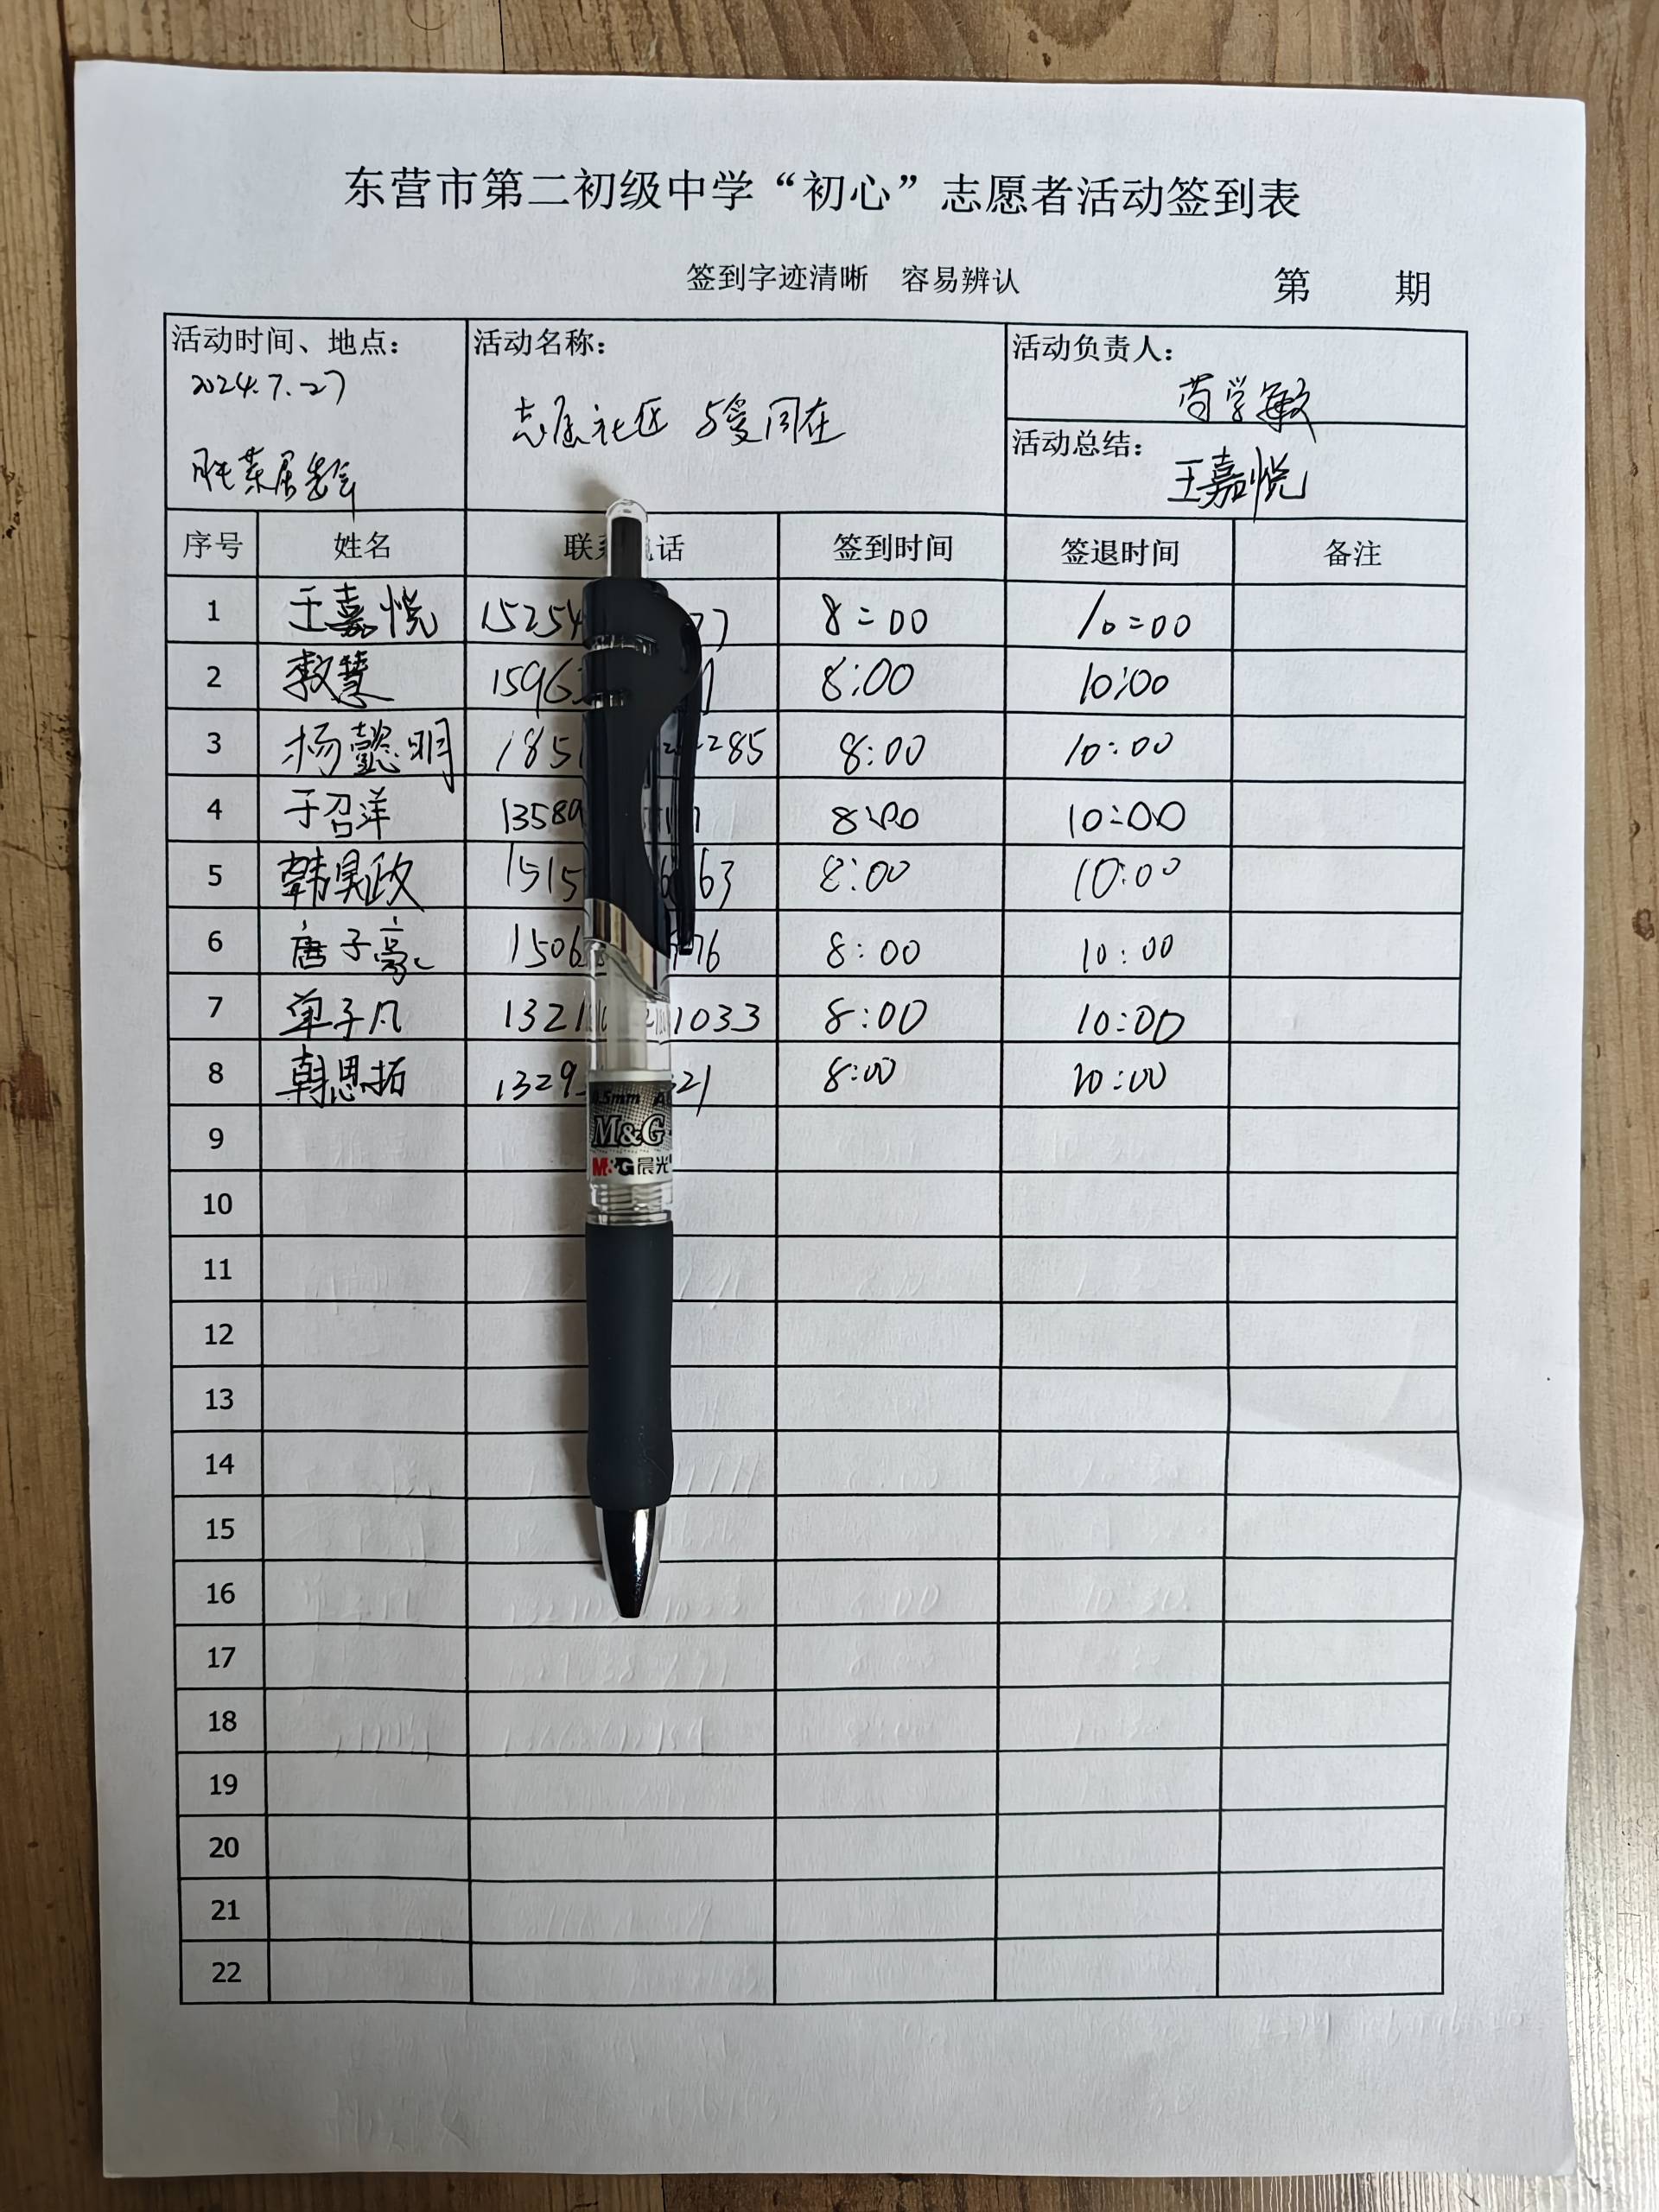 东营市第二初级中学“初心”志愿者活动签到表
签到字迹清晰 容易辨认 第 期
活动时间、地点： 活动名称： 活动负责人：
2024.7.27 志愿社区 与爱同在 苟学敏
居委会 活动总结：
王嘉悦
序号 姓名 联系 话 签到时间 签退时间 备注
1 王嘉悦 15254 77 8:00 10:00
2 慧 1596 8:00 10:00
3 杨懿明 185 285 8:00 10:00
4 于召洋 1358 8:00 10:00
5 韩昊政 1515 63 8:00 10:00
6 唐子豪 1506 76 8:00 10:00
7 单子凡 1321 1033 8:00 10:00
8 韩思拓 1329 21 8:00 10:00
0.5mm
M&G
M&G晨光
9
10
11
12
13
14
15
16
17
18
19
20
21
22